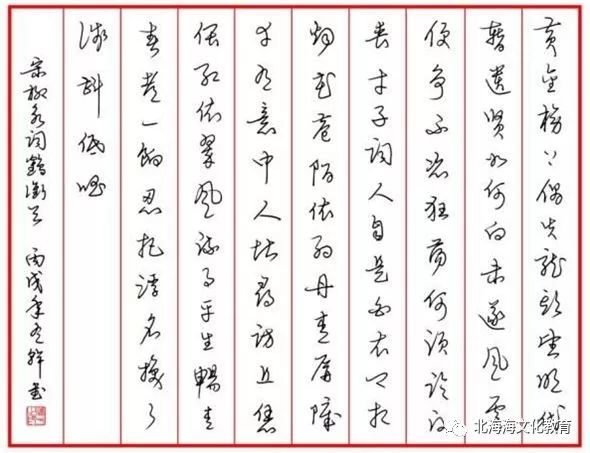 黄金榜上偶失龙头望明代
暂遗贤如何向未遂风云
便争不恣狂荡何须论得
丧才子词人自是白衣卿相
烟花巷陌依约丹青屏障
幸有意中人堪寻访且恁
偎红依翠风流事平生暢青
春都一饷忍把浮名换了
浅斟低唱
宋柳永词鹤冲天 丙戌年书
北海海文化教育